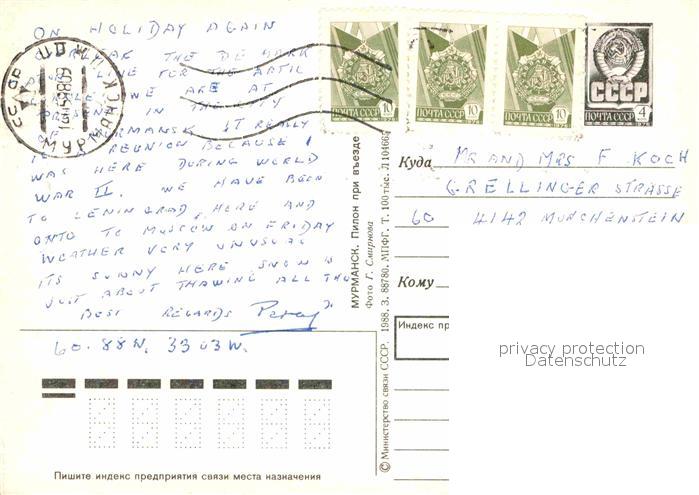 ON HOLIDAY AGAIN
THE DE MARK
LINE FOR THE ARTIC
WE ARE AT
IN THE CITY
OF MURMANSK IT REALLY
IS A REUNION BECAUSE I
WAS HERE DURING WORLD
WAR II. WE HAVE BEEN
TO LENINGRAD, HERE AND
ONTO TO MOSCOW ON FRIDAY
WEATHER VERY UNUSUAL
ITS SUNNY HERE SNOW IS
JUST ABOUT THAWING ALL THO
BEST REGARDS
60. 88 N. 33 03 W.
Пишите индекс предприятия связи места назначения
МУРМАНСК. Пилон при въезде
Фото Г. Смирнова
© Министерство связи СССР. 1988. З. 88780. МПФГ. Т. 100 тыс. Л 10466
ПОЧТА СССР 10
ПОЧТА СССР 10
ПОЧТА СССР 10
СССР
ПОЧТА СССР 4
Куда MR AND MRS F KOCH
GRELLINGER STRASSE
60 4142 MUNCHENSTEIN
Кому
Индекс пр
privacy protection
Datenschutz